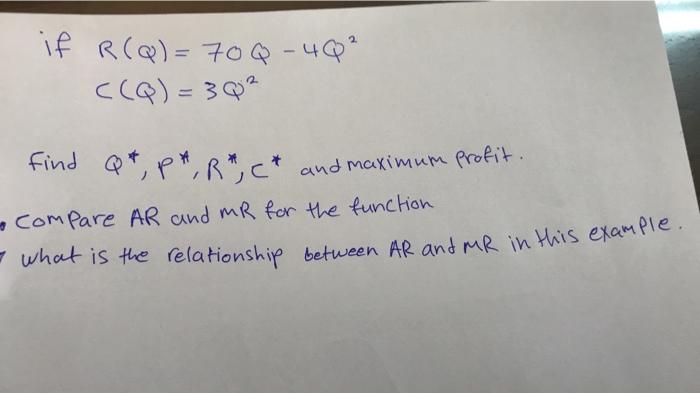 if R(Q) = 70Q - 4Q²
C(Q) = 3Q²
Find Q*, P*, R*, C* and maximum Profit.
• Compare AR and MR for the function
what is the relationship between AR and MR in this example.